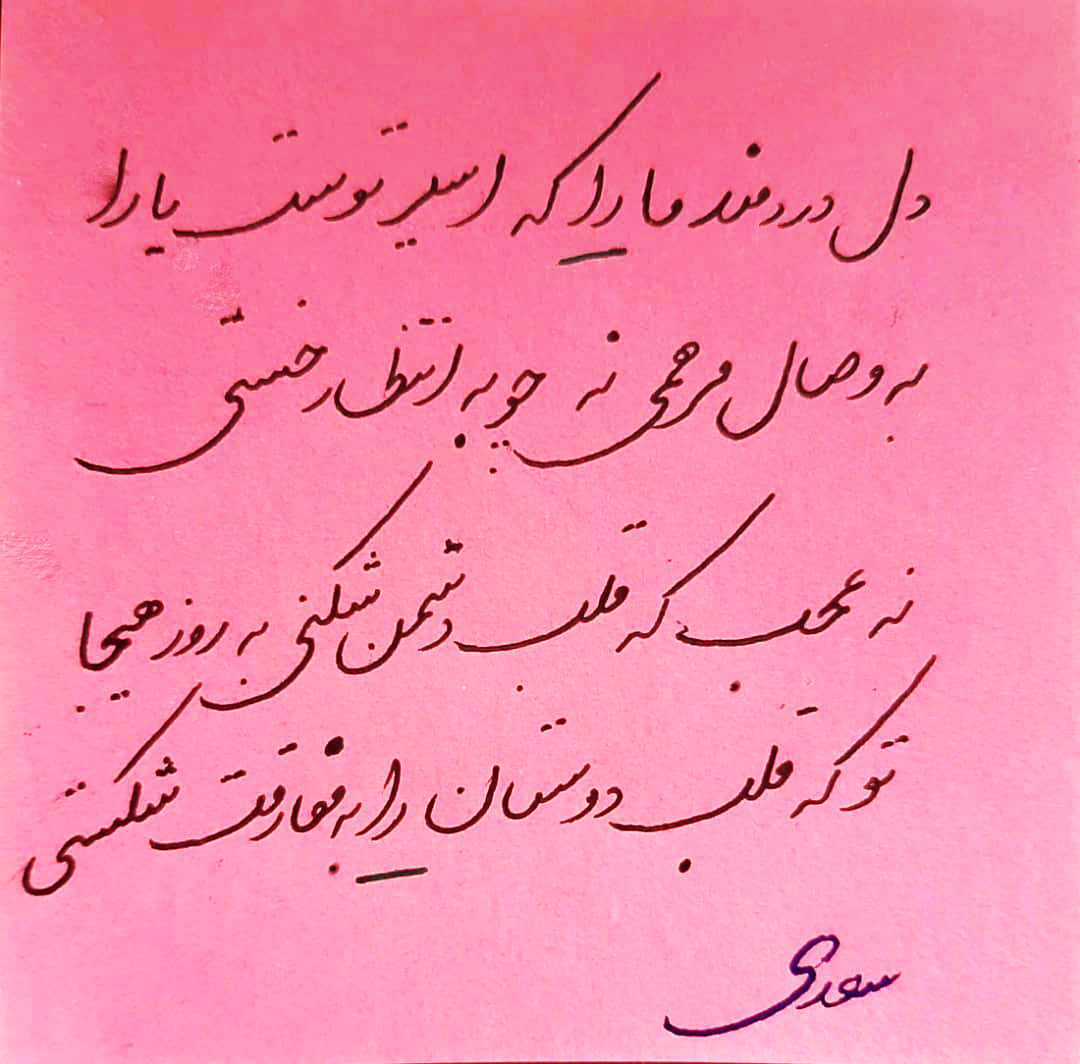 دل دردمند ما را که اسیر توست یارا
به وصال مرهمی نه چو به انتظار خستی
نه عجب که قلب دشمن شکنی به روز هیجا
تو که قلب دوستان را به مفارقت شکستی
سعدی